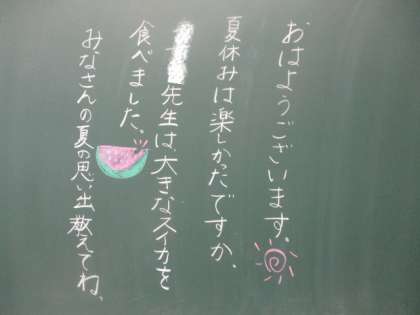 おはようございます。
夏休みは楽しかったですか。
先生は、大きなスイカを
食べました。
みなさんの夏の思い出教えてね、